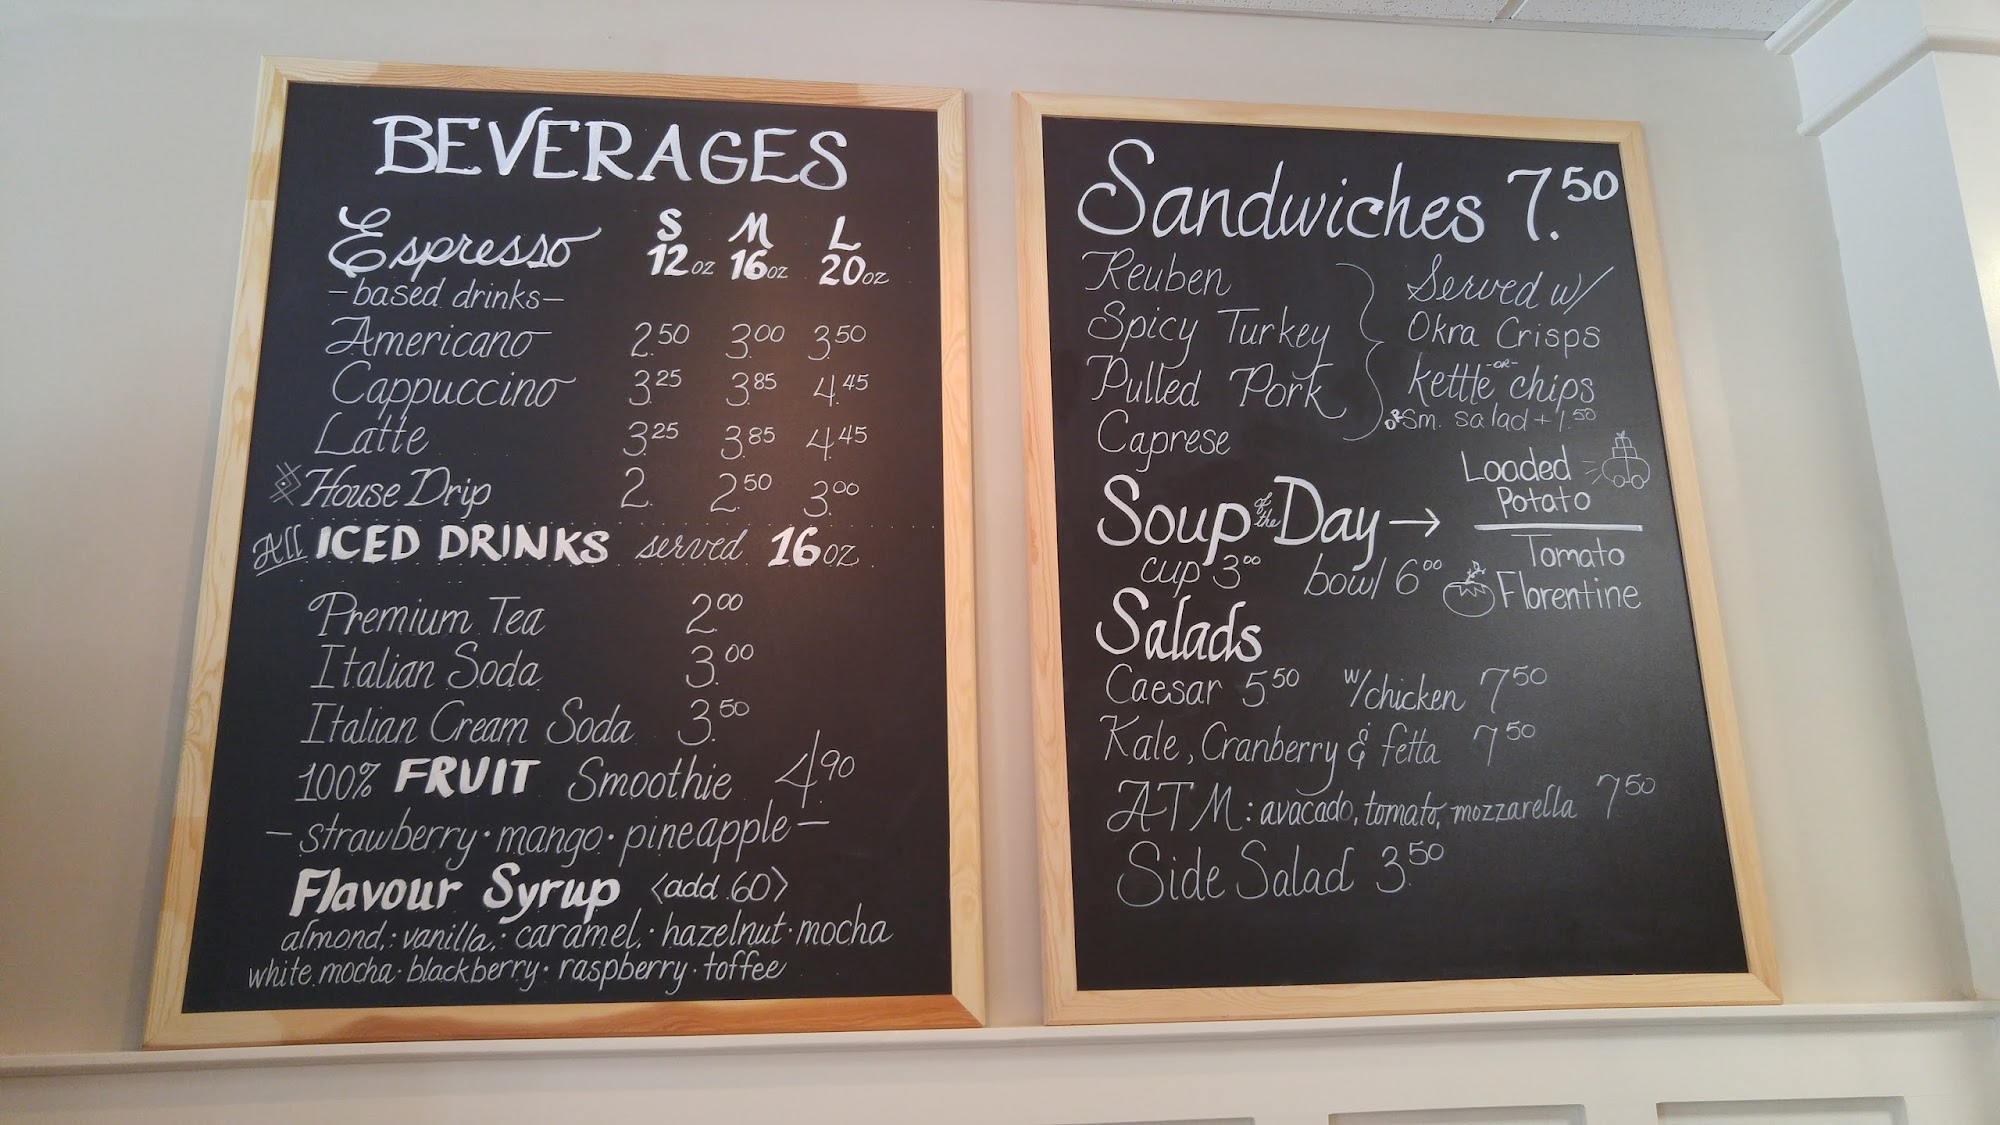 BEVERAGES
Espresso S M L
12oz 16oz 20oz
-based drinks-
Americano 2.50 3.00 3.50
Cappuccino 3.25 3.85 4.45
Latte 3.25 3.85 4.45
House Drip 2. 2.50 3.00
All ICED DRINKS served 16oz
Premium Tea 2.00
Italian Soda 3.00
Italian Cream Soda 3.50
100% FRUIT Smoothie 4.90
- strawberry · mango · pineapple -
Flavour Syrup <add .60>
almond · vanilla · caramel · hazelnut · mocha
white mocha · blackberry · raspberry · toffee
Sandwiches 7.50
Reuben
Spicy Turkey
Pulled Pork
Caprese
Served w/
Okra Crisps
-or-
kettle chips
or sm. salad + 1.50
Soup of the Day →
cup 3.00 bowl 6.00
Loaded
Potato
Tomato
Florentine
Salads
Caesar 5.50 w/chicken 7.50
Kale, Cranberry & fetta 7.50
ATM: avacado, tomato, mozzarella 7.50
Side Salad 3.50